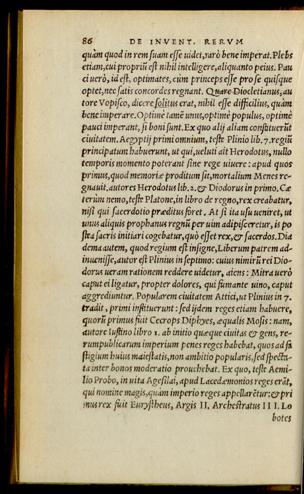 86 DE INVENT. RERVM
quàm quod in rem suam esse uidet, rarò bene imperat. Plebs
etiam, cui propriũ est nihil intelligere, aliquanto peius. Pau
ci uerò, id est, optimates, cùm princeps esse pro se quisque
optet, nec satis concordes regnant. Quare Diocletianus, au
tore Vopisco, dicere solitus erat, nihil esse difficilius, quàm
bene imperare. Optimè tamẽ unus, optimè populus, optimè
pauci imperant, si boni sunt. Ex quo alij aliam constituerũt
ciuitatem. Aegyptij primi omnium, teste Plinio lib. 7. regiũ
principatum habuerunt, ut qui, ueluti ait Herodotus, nullo
temporis momento poterant sine rege uiuere: apud quos
primus, quod memoriæ proditum sit, mortalium Menes re-
gnauit. autores Herodotus lib. 2. & Diodorus in primo. Cæ
terùm nemo, teste Platone, in libro de regno, rex creabatur,
nisi qui sacerdotio præditus foret. At si ita usu ueniret, ut
unus aliquis prophanus regnũ per uim adipisceretur, is po
stea sacris initiari cogebatur, quò esset rex, & sacerdos. Dia
dema autem, quod regium est insigne, Liberum patrem ad-
inuenisse, autor est Plinius in septimo: cuius nimirũ rei Dio
dorus ueram rationem reddere uidetur, aiens: Mitra uerò
caput ei ligatur, propter dolores, qui fumante uino, caput
aggrediuntur. Popularem ciuitatem Attici, ut Plinius in 7.
tradit, primi instituerunt: sed ijdem reges etiam habuere,
quorũ primus fuit Cecrops Diphyes, æqualis Mosi: nam,
autore Iustino libro 1. ab initio quæque ciuitas & gens, re-
rumpublicarum imperium penes reges habebat, quos ad fa
stigium huius maiestatis, non ambitio popularis, sed specta-
ta inter bonos moderatio prouehebat. Ex quo, teste Aemi-
lio Probo, in uita Agesilai, apud Lacedæmonios reges erãt,
qui nomine magis, quàm imperio reges appellarẽtur: & pri
mus rex fuit Eurystheus, Argis II, Archestratus III. Lo
botes